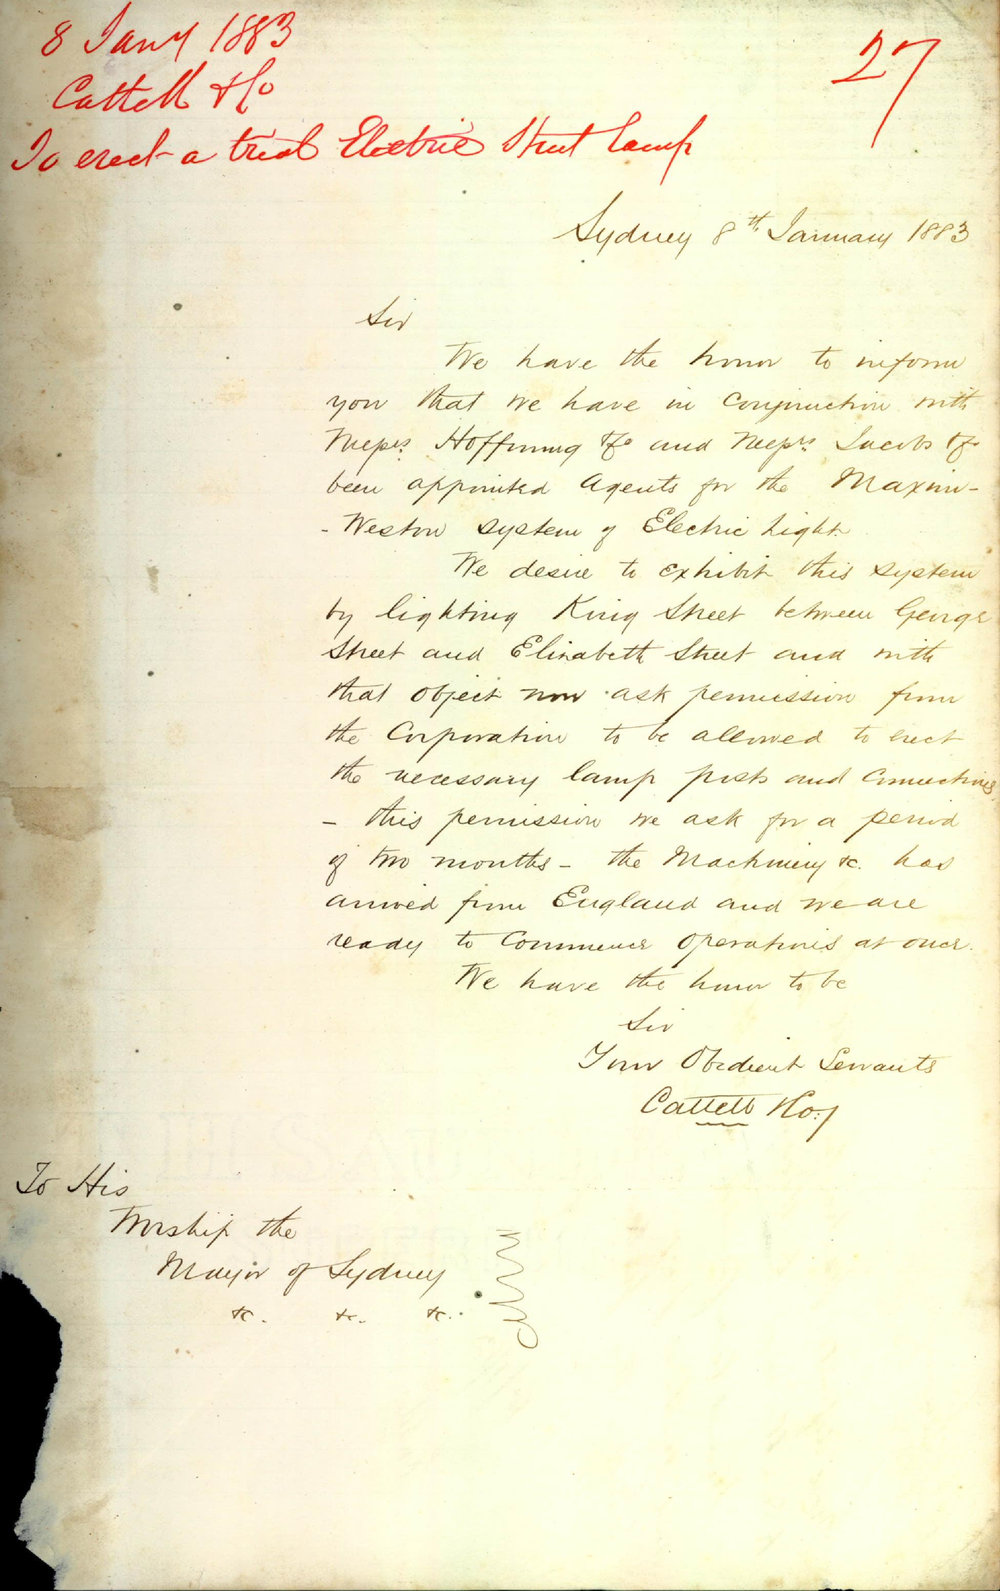 8 Jany 1883
27
Cattell & Co
To erect a trial Electric Street Lamp
Sydney 8th January 1883
Sir
We have the honor to inform
you that we have in conjunction with
Messrs. Hoffnung & Co and Messrs. Jacobs & Co
been appointed Agents for the Maxim-
-Weston system of Electric Light.
We desire to exhibit this system
by lighting King Street between George
Street and Elizabeth Street and with
that object now ask permission from
the Corporation to be allowed to erect
the necessary lamp posts and connections,
- this permission we ask for a period
of two months - the Machinery &c. has
arrived from England and we are
ready to commence operations at once.
We have the honor to be
Sir
Your Obedient Servants
Cattell & Co.
To His
Worship the
Mayor of Sydney
&c. &c. &c.